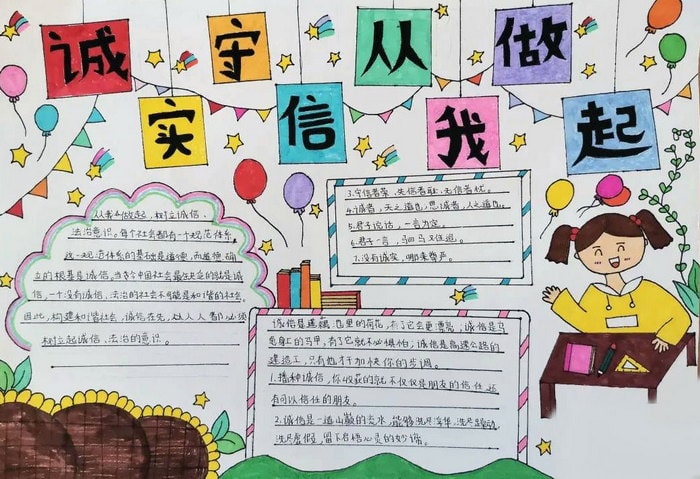 诚实守信从我做起
从我做起,树立诚信、
法治意识。每个社会都有一个规范体系,
这一规范体系的基础是道德,而道德确
立的根基是诚信,当今中国社会最的就是诚
信,一个没有诚信,法治的社会不可能是和谐的社会,
因此,构建和谐社会,诚信在先,人人都必须
树立起诚信、法治的意识。
3.守信者荣,失信者耻,无信者忧。
4.诚者,天之道也,思诚者,人之道也。
5.君子诺诺,一言为定。
6.君子一言,驷马难追。
7.没有诚实,哪来尊严。
诚信是莲藕,池里的荷花,不了它会更漂亮,诚信是乌
龟身上的马甲,有了它就不必惧怕;诚信是高速公路的
建造工,只有他才加快你的步调。
1.播种诚信,你收获的就不仅仅是朋友的信任还
有可以信任的朋友。
2.诚信是一道山巅的流水,能够洗尽浮华,洗尽躁动,
洗尽虚假,留下启悟心灵的妙谛。